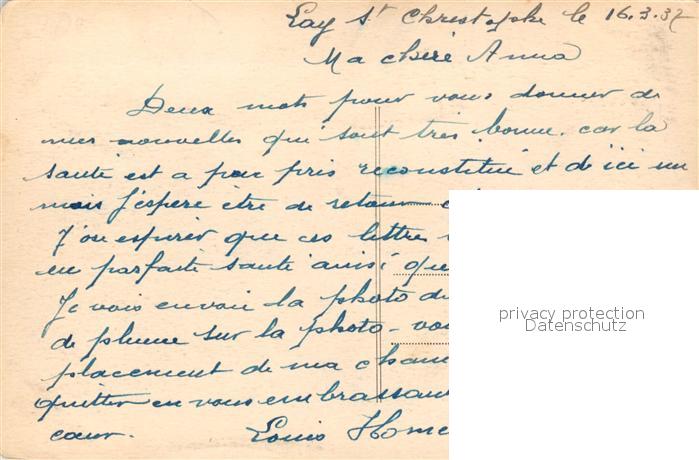 Lay St Christophe le 16.3.37
Ma chère Anna
Deux mots pour vous donner de
mes nouvelles qui sont très bonne. car la
santé est a peu pris reconstitué et de ici un
mois J'espere être de retour
J'ose esperer que ces lettres
en parfaite santé ainsi que
Je vois envoie la photo du
de plume sur la photo - vou
placement de ma cham
quitter en vous embrassant
cœur. Louis
privacy protection
Datenschutz